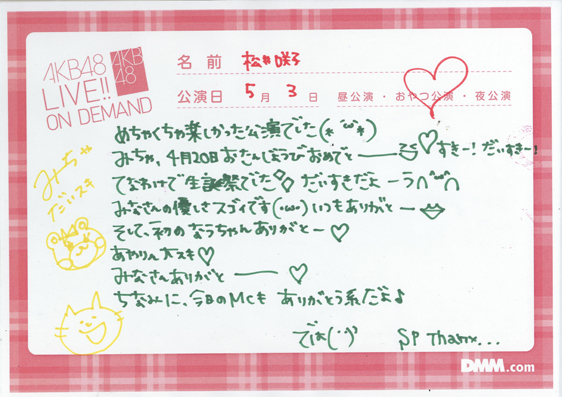 AKB48
LIVE!!
ON DEMAND
AKB
48
名前 松井咲子
公演日 5月3日 昼公演・おやつ公演・夜公演
めちゃくちゃ楽しかった公演でした(*´ω`*)
みちゃ、4月20日おたんじょうびおめでとー♡すきー!だいすきー!
てなわけで生誕祭でした◇ だいすきだよーう
みなさんの優しさスゴイです(・ω・)いつもありがとー
そして、初のなうちゃんありがとー♡
あやりん大スキ♡
みなさんありがとー♡
ちなみに、今日のMCも ありがとう系だよ♪
では(・・)
SP Thanx...
みちゃ
だいスキ
DMM.com